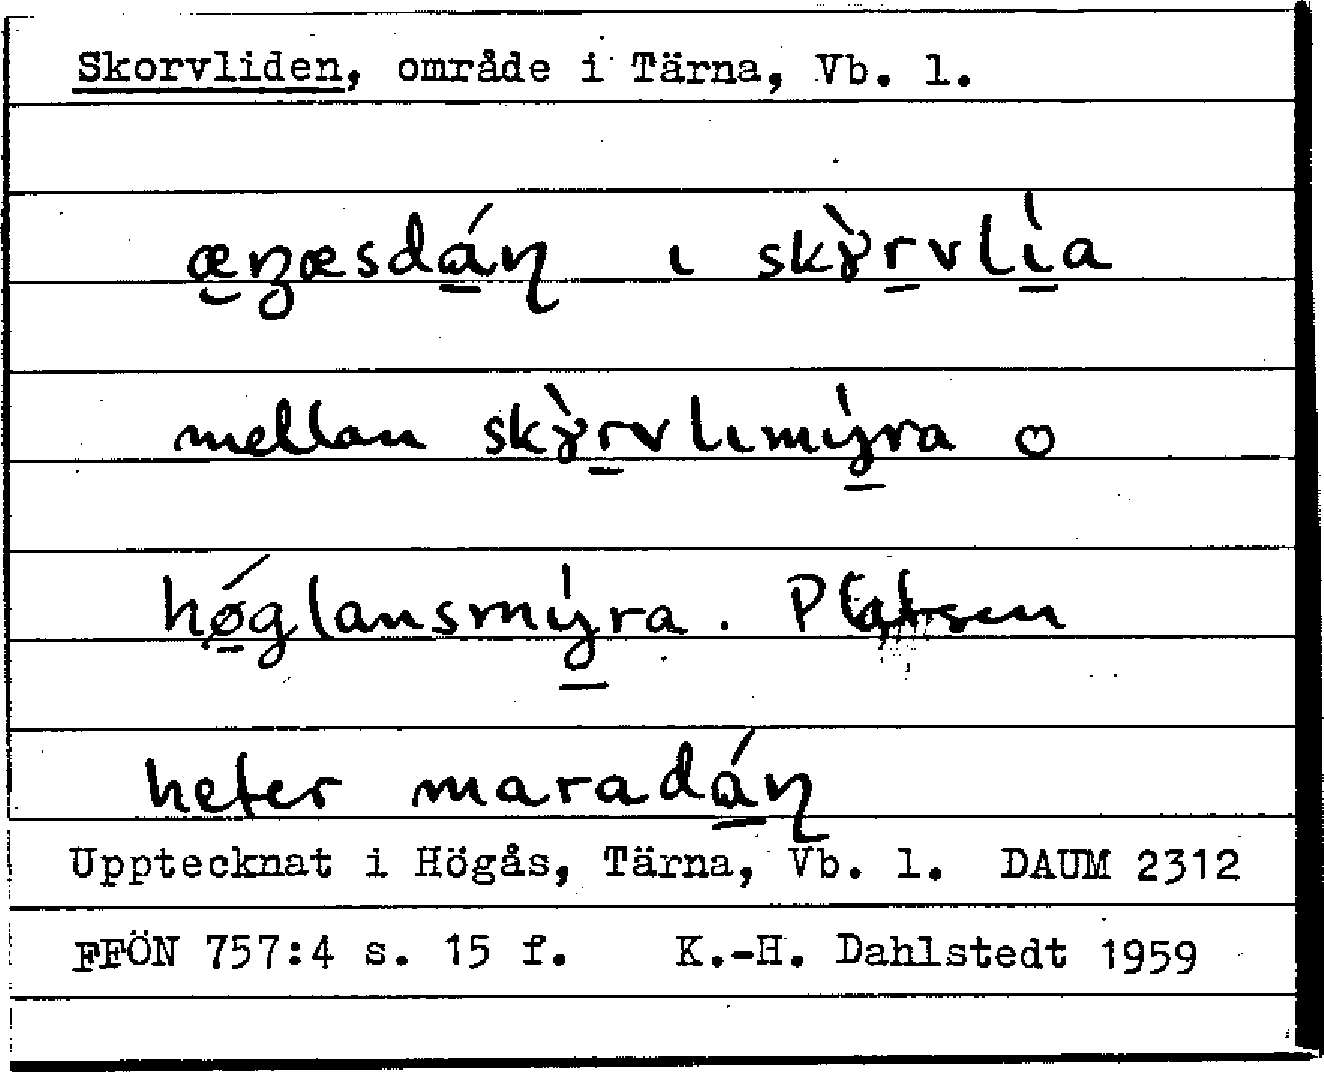 Skorvliden, område i Tärna, Vb. l.
æŋæsdáɳ ɩ skɣ̀rvlı̀a
mellan skɣ̀rvlımýra o
hǿglansmýra. Platsen
heter maradáɳ
Upptecknat i Högås, Tärna, Vb. l. DAUM 2312
FFÖN 757:4 s. 15 f. K.-H. Dahlstedt 1959